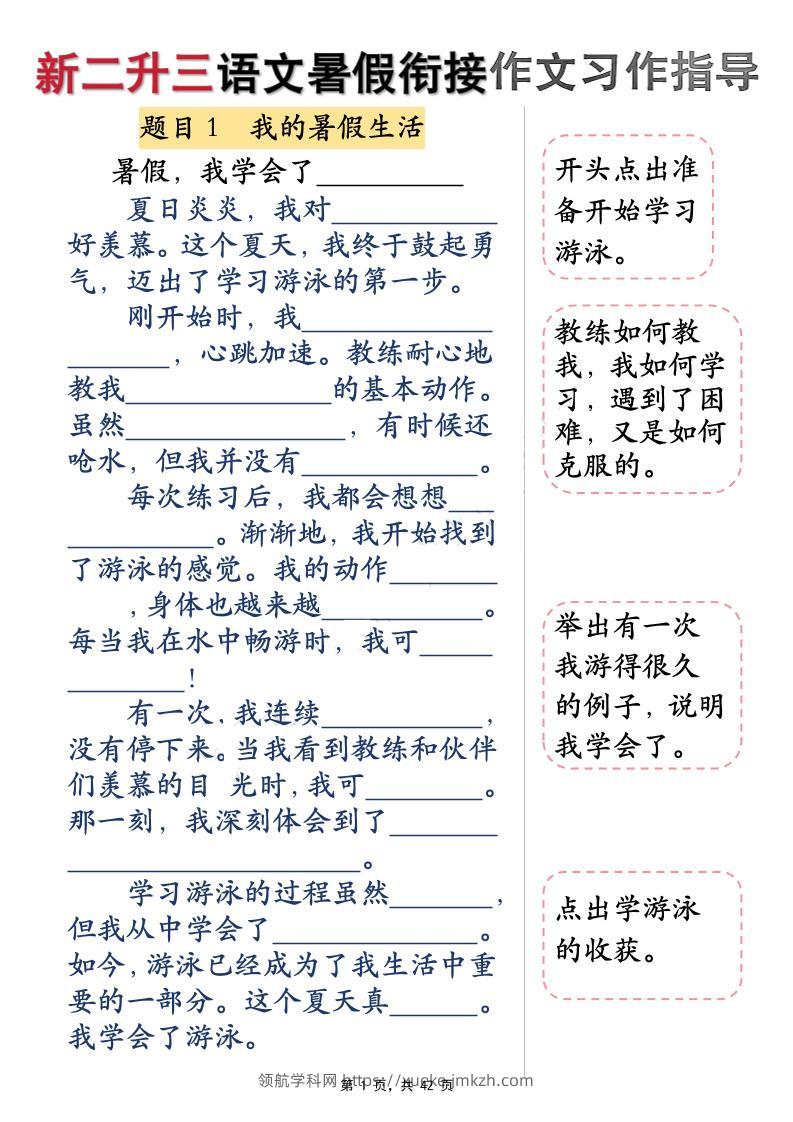 新二升三语文暑假衔接作文习作指导
题目1 我的暑假生活
暑假，我学会了__________
夏日炎炎，我对___________
好羡慕。这个夏天，我终于鼓起勇
气，迈出了学习游泳的第一步。
刚开始时，我_____________
_______，心跳加速。教练耐心地
教我______________的基本动作。
虽然_______________，有时候还
呛水，但我并没有____________。
每次练习后，我都会想想___
__________。渐渐地，我开始找到
了游泳的感觉。我的动作_______
，身体也越来越___________。
每当我在水中畅游时，我可_____
________！
有一次，我连续___________，
没有停下来。当我看到教练和伙伴
们羡慕的目 光时，我可________。
那一刻，我深刻体会到了_______
____________________。
学习游泳的过程虽然_______，
但我从中学会了______________。
如今，游泳已经成为了我生活中重
要的一部分。这个夏天真______。
我学会了游泳。
开头点出准
备开始学习
游泳。
教练如何教
我，我如何学
习，遇到了困
难，又是如何
克服的。
举出有一次
我游得很久
的例子，说明
我学会了。
点出学游泳
的收获。
领航学科网 https://xueke.jmkzh.com
第 1 页，共 42 页